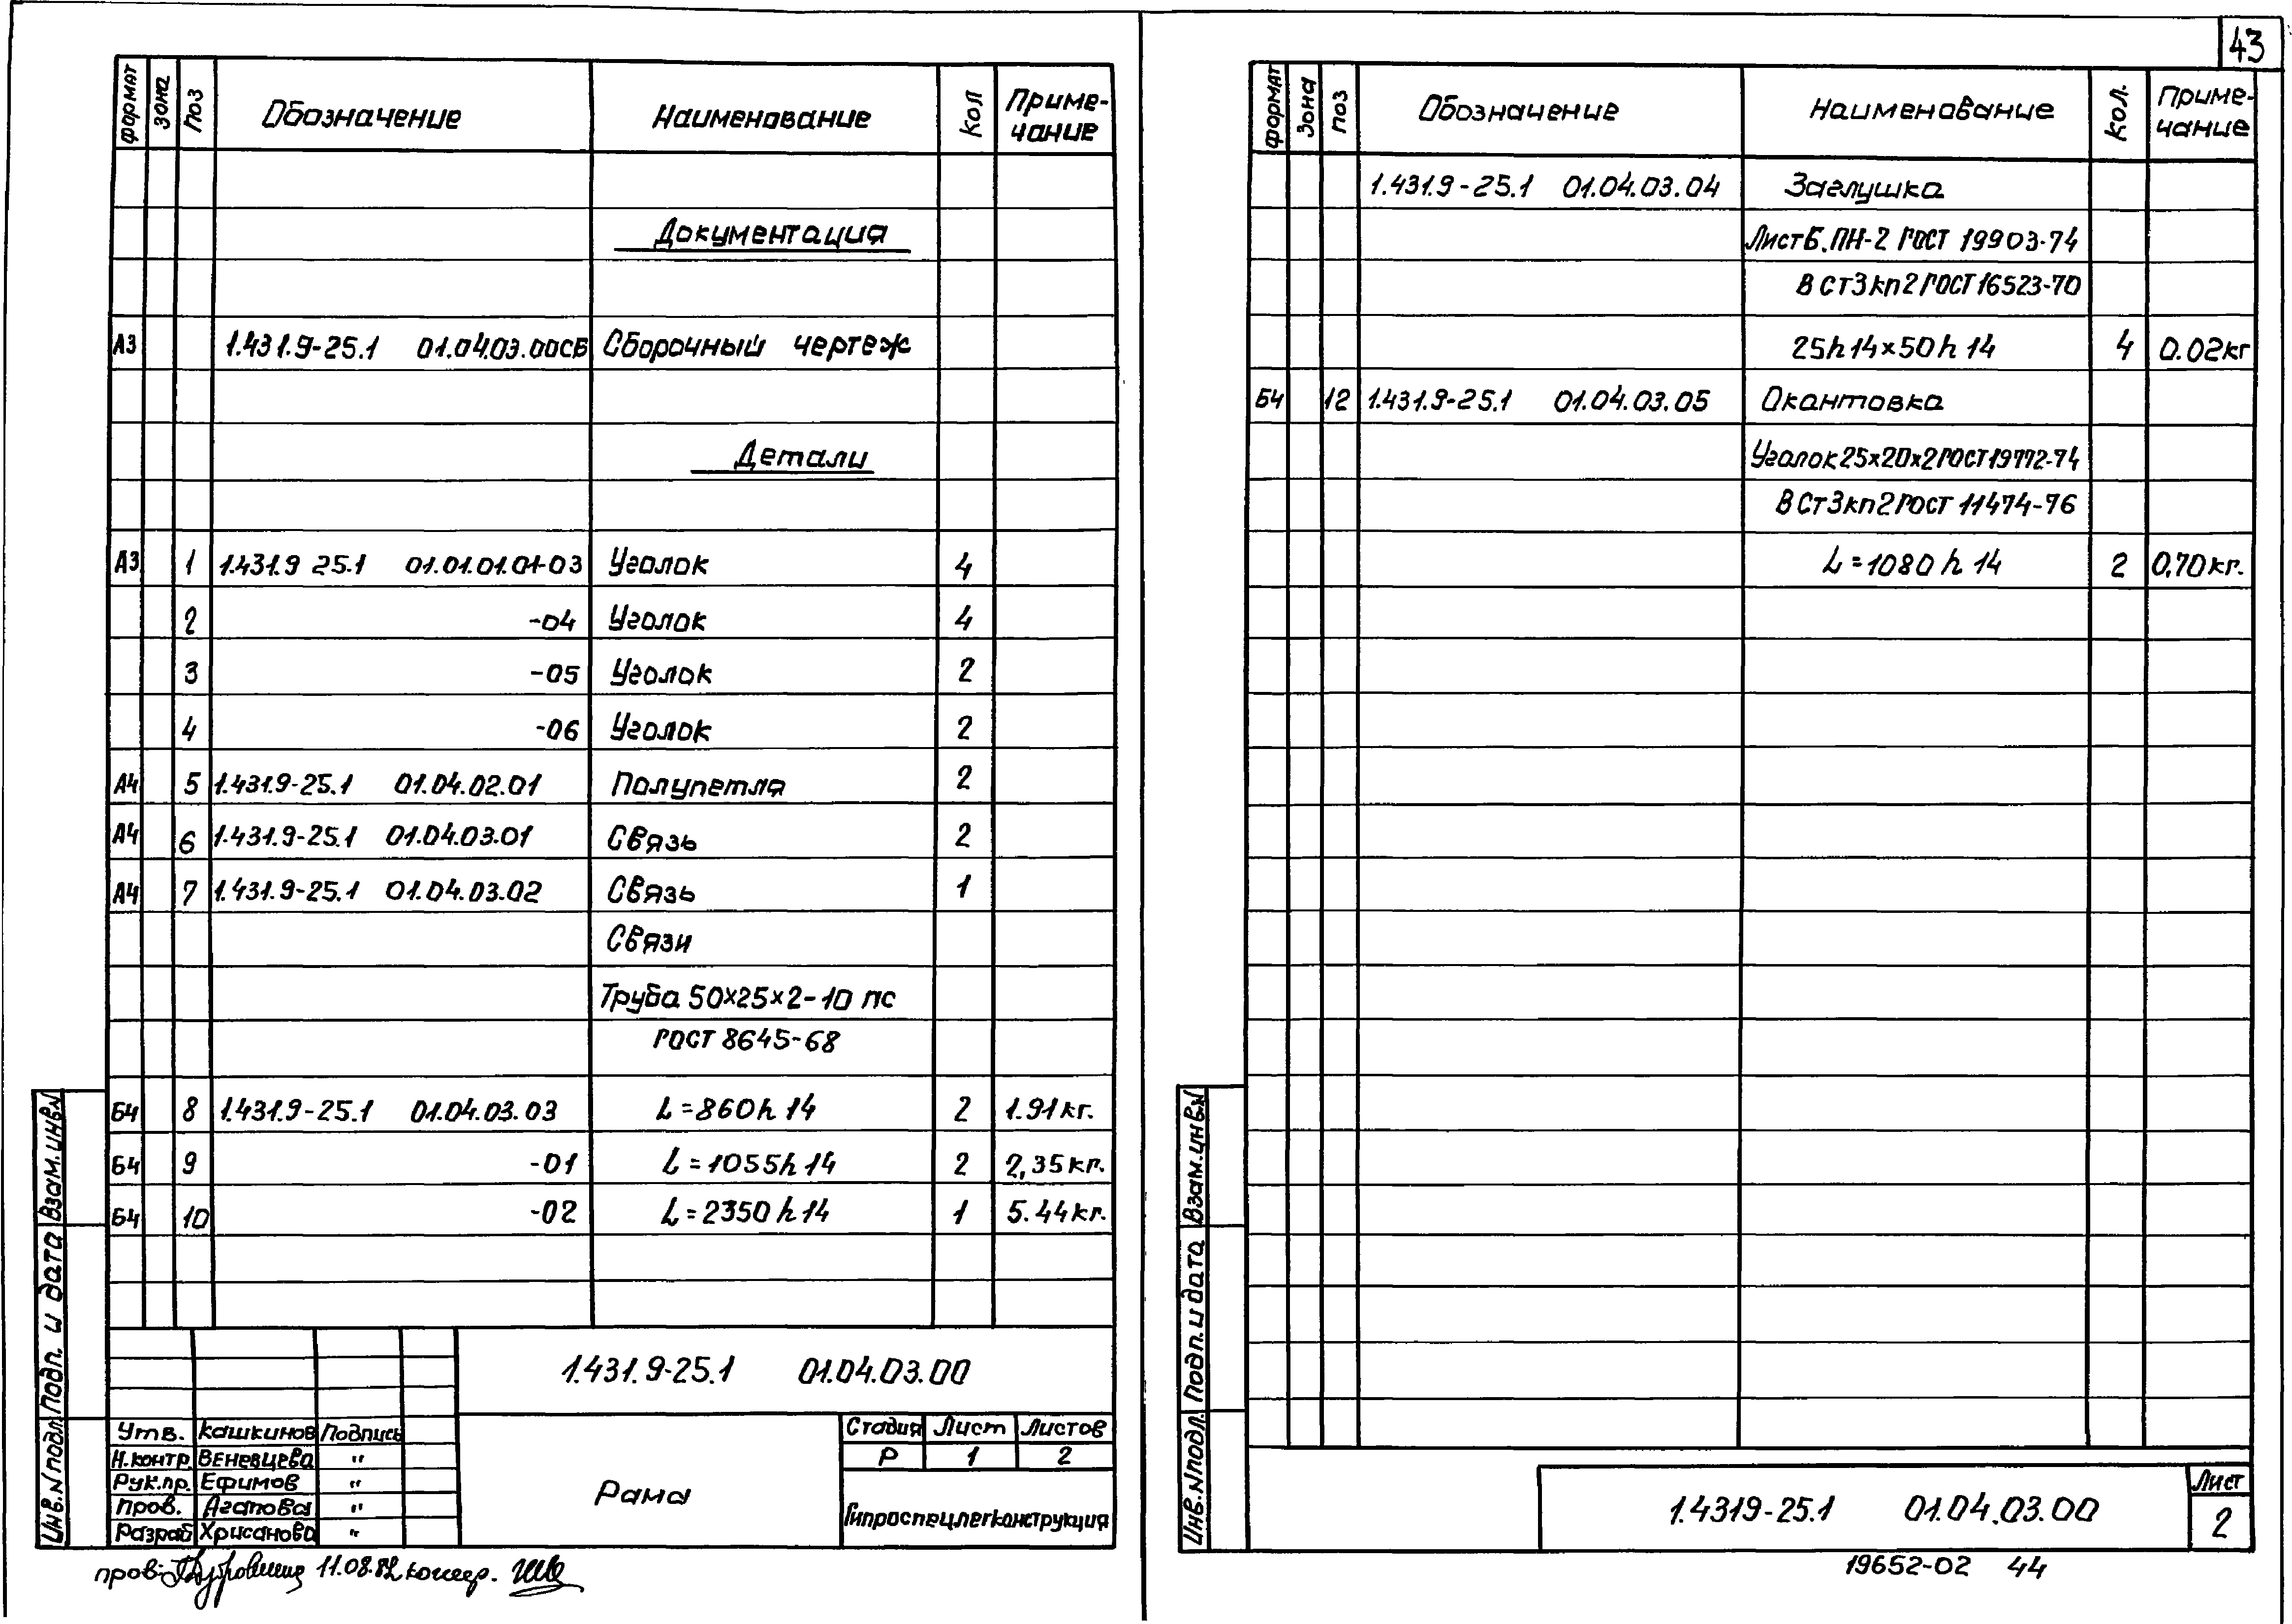 формат зона поз Обозначение Наименование Кол Приме-
чание
Документация
А3 1.431.9-25.1 01.04.03.00СБ Сборочный чертеж
Детали
А3 1 1.431.9 25.1 01.01.01.01-03 Уголок 4
2 -04 Уголок 4
3 -05 Уголок 2
4 -06 Уголок 2
А4 5 1.431.9-25.1 01.04.02.01 Полупетля 2
А4 6 1.431.9-25.1 01.04.03.01 Связь 2
А4 7 1.431.9-25.1 01.04.03.02 Связь 1
Связи
Труба 50х25х2-10 пс
ГОСТ 8645-68
Б4 8 1.431.9-25.1 01.04.03.03 L=860h14 2 1.91кг.
Б4 9 -01 L=1055h14 2 2,35кг.
Б4 10 -02 L=2350h14 1 5.44кг.
1.431.9-25.1 01.04.03.00
Утв. Кашкинов Подпись
Н.контр. Веневцева "
Рук.пр. Ефимов "
Пров. Агапова "
Разраб Хрисанова "
Рама
Стадия Лист Листов
Р 1 2
Гипроспецлегконструкция
Взам.инв.№
Подп. и дата
Инв.№подл.
пров. 11.08.82
43
формат Зона поз Обозначение Наименование кол. Приме-
чание
1.431.9-25.1 01.04.03.04 Заглушка
Лист Б.ПН-2 ГОСТ 19903-74
В Ст3кп2 ГОСТ 16523-70
25h14х50h14 4 0.02кг
Б4 12 1.431.9-25.1 01.04.03.05 Окантовка
Уголок 25х20х2 ГОСТ 19772-74
В Ст3кп2 ГОСТ 11474-76
L=1080h14 2 0,70кг.
Взам.инв.№
Подп. и дата
Инв.№подл.
1.431.9-25.1 01.04.03.00
Лист
2
19652-02 44